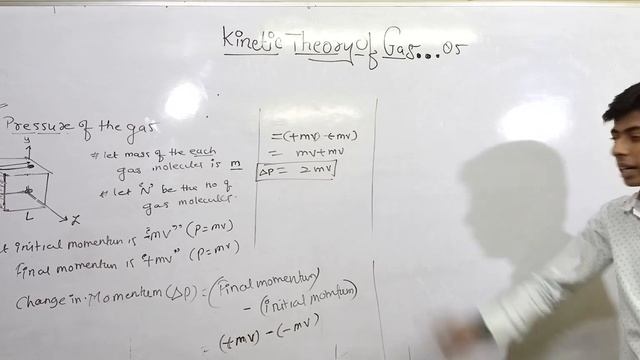 Kinetic Theory of Gas...05
Pressure of the gas
y
L
Z
* let mass of the each
gas molecules is m
* let "N" be the no of
gas molecules.
initial momentum is "-mv" (P=mv)
Final momentum is "+mv" (P=mv)
Change in Momentum (ΔP) = (Final momentum)
- (initial momtum)
= (+mv) - (-mv)
= (+mv) - (-mv)
= mv+mv
ΔP = 2mv